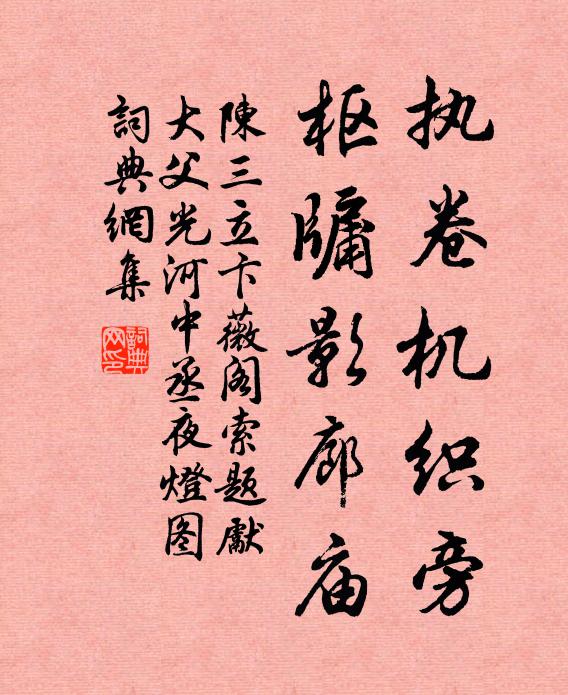 执卷机织旁
枢牖影廊庙
陳三立卞薇阁索题獻
大父光河中丞夜燈图
詞典網集
詞典网印